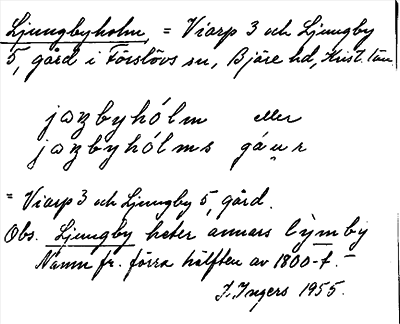 Ljungbyholm = Viarp 3 och Ljungby
5, gård i Förslövs sn, Bjäre hd, Krist. län
jɔŋbyhólm eller
jɔŋbyhólms gáuʀ
= Viarp 3 och Ljungby 5, gård.
Obs. Ljungby heter annars lỳmby
Namn fr. förra hälften av 1800-t. –
I. Ingers 1955.